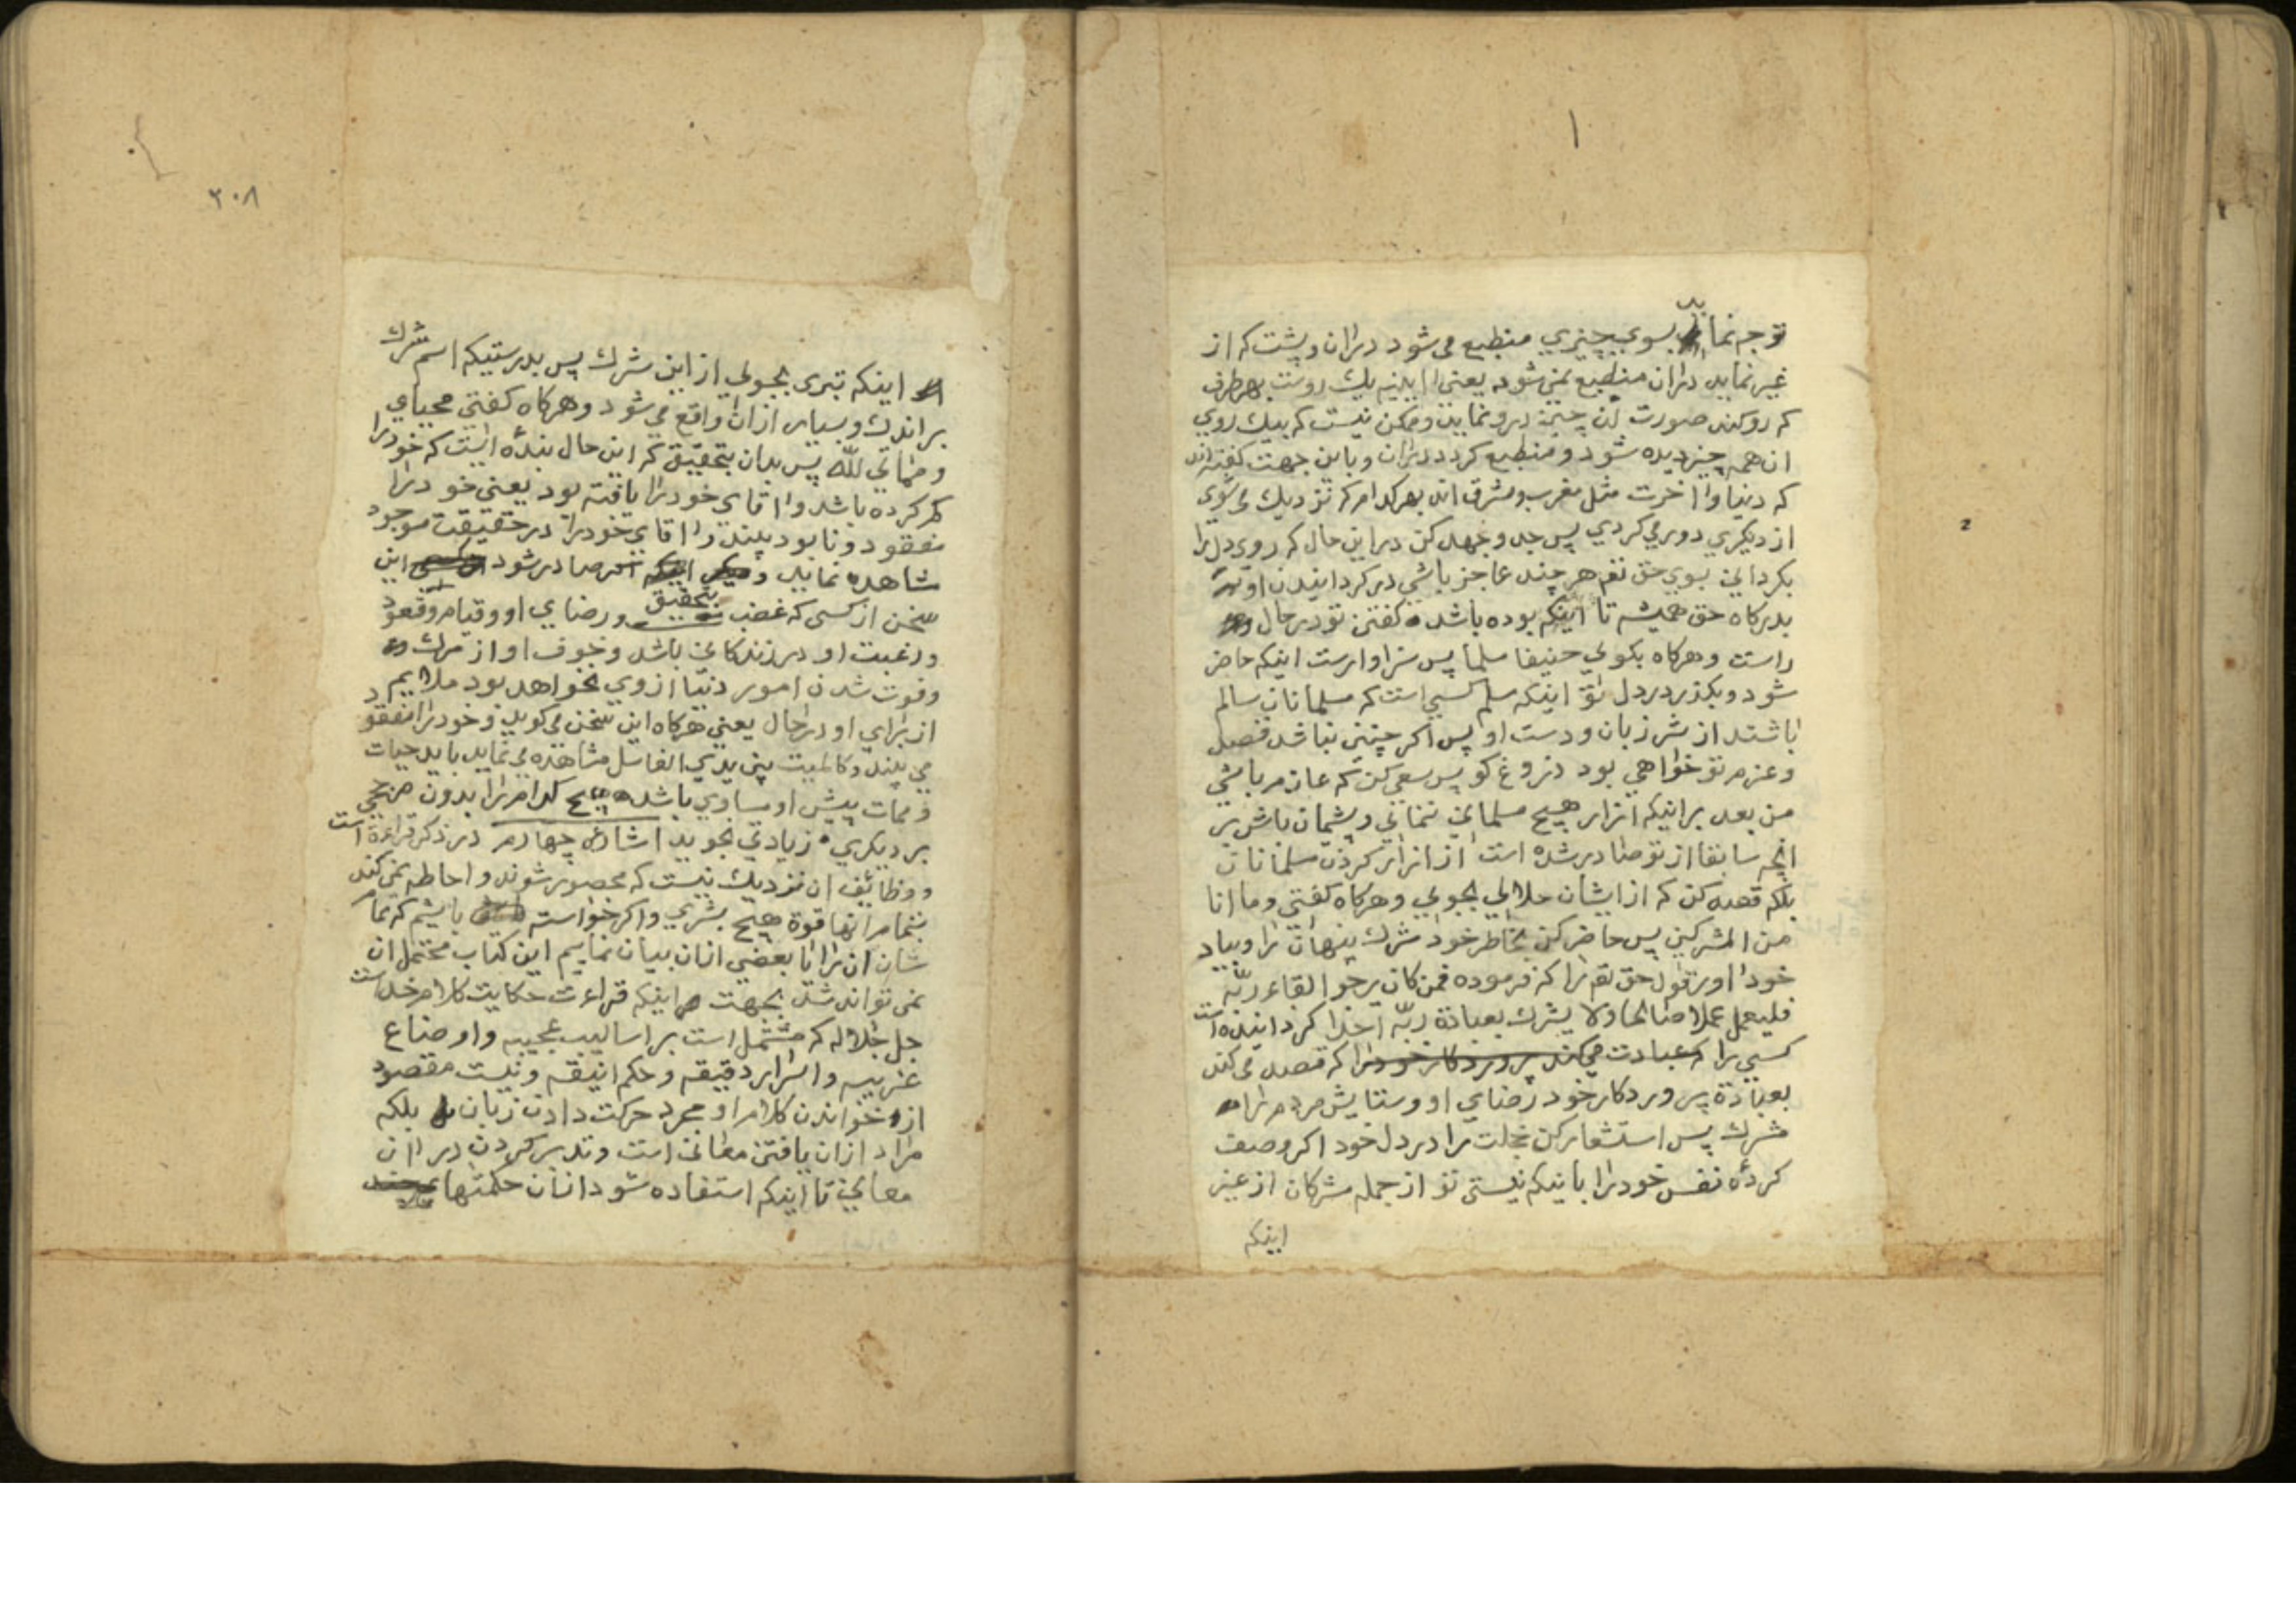 توجه نماید بسوی چیزی منطبع می شود در ان و پشت که از
غیر نماید در ان منطبع نمی شود یعنی ایینه یک روست بهر طرف
که رو کند صورت ان چیز در و نماید و ممکن نیست که بیک روی
ان همه چیز دیده شود و منطبع کردد در ان و باین جهت کفته اند
که دنیا و اخرت مثل مغرب و مشرق اند بهر کدام که نزدیک می شوی
از دیکری دور می کردی پس جد و جهد کن در این حال که روی دل را
بکردانی بسوی حق تعم هر چند عاجز باشی در کردانیدن او
بدرکاه حق همیشه تا اینکه بوده باشد کفتن تو در حال
راست و هرکاه بکوئی حنیفا مسلما پس سزاوارست اینکه حاضر
شود و بکذرد در دل تو اینکه مسلم کسی است که مسلمانان سالم
باشند از شر زبان و دست او پس اکر چنین نباشد قصد
و عزم تو خواهی بود دروغ کو پس سعی کن که عازم باشی
من بعد بر اینکه ازار هیچ مسلمانی ننمائی و پشیمان باش بر
انچه سابقا از تو صادر شده است از ازار کردن مسلمانان
بلکه قصد کن که از ایشان حلالی بجوئی و هرکاه کفتی و ما انا
من المشرکین پس حاضر کن بخاطر خود شرک پنهان را و بیاد
خود اور قول حق تعم را که فرموده فمن کان یرجوا لقاء ربّه
فلیعمل عملا صالحا ولا یشرک بعبادة ربّه احدا کردانیده است
کسی را که عبادت می کند پروردکار خود را که قصد می کند
بعبادة پروردکار خود رضای او و ستایش مردم را
شرک پس استشعار کن خجلت را در دل خود اکر وصف
کردۀ نفس خود را باینکه نیستی تو از جمله مشرکان از غیر
اینکه
٢٠٨
اینکه تبری بجوئی از این شرک پس بدرستیکه اسم شرک
بر اندک و بسیار از ان واقع می شود و هرکاه کفتی محیای
و مماتی للّه پس بدان بتحقیق که این حال بندۀ ایست که خود را
کم کرده باشد و اقای خود را یافته بود یعنی خود را
مفقود و نابود بیند و اقای خود را در حقیقت موجود
مشاهده نماید و اینکه صادر شود این
سخن از کسی که غضب بتحقیق و رضای او و قیام و قعود
و رغبت او در زندکانی باشد و خوف او از مرک و
و فوت شدن امور دنیا از وی نخواهد بود ملایم
از برای او در حال یعنی هرکاه این سخن می کوید و خود را مفقود
می بیند و کالمیت بین یدی الغاسل مشاهده می نماید باید حیات
و ممات پیش او مساوی باشد هیچ کدام را بدون مرجحی
بر دیکری زیادتی نجوید اشارۀ چهارم در ذکر قراءة است
و وظائف ان نزدیک نیست که محصور شوند و احاطه نمی کند
بتمام انها قوة هیچ بشری و اکر خواسته باشیم که تمام
شان ان را یا بعضی از ان بیان نماییم این کتاب محتمل ان
نمی تواند شد بجهت اینکه قراءت حکایت کلام خداست
جل جلاله که مشتمل است بر اسالیب عجیبه و اوضاع
غریبه و اسرار دقیقه و حکم انیقه و نیست مقصود
از خواندن کلام او مجرد حرکت دادن زبان بلکه
مراد از ان یافتن معانی است و تدبر کردن در ان
معانی تا اینکه استفاده شود از ان حکمتهای